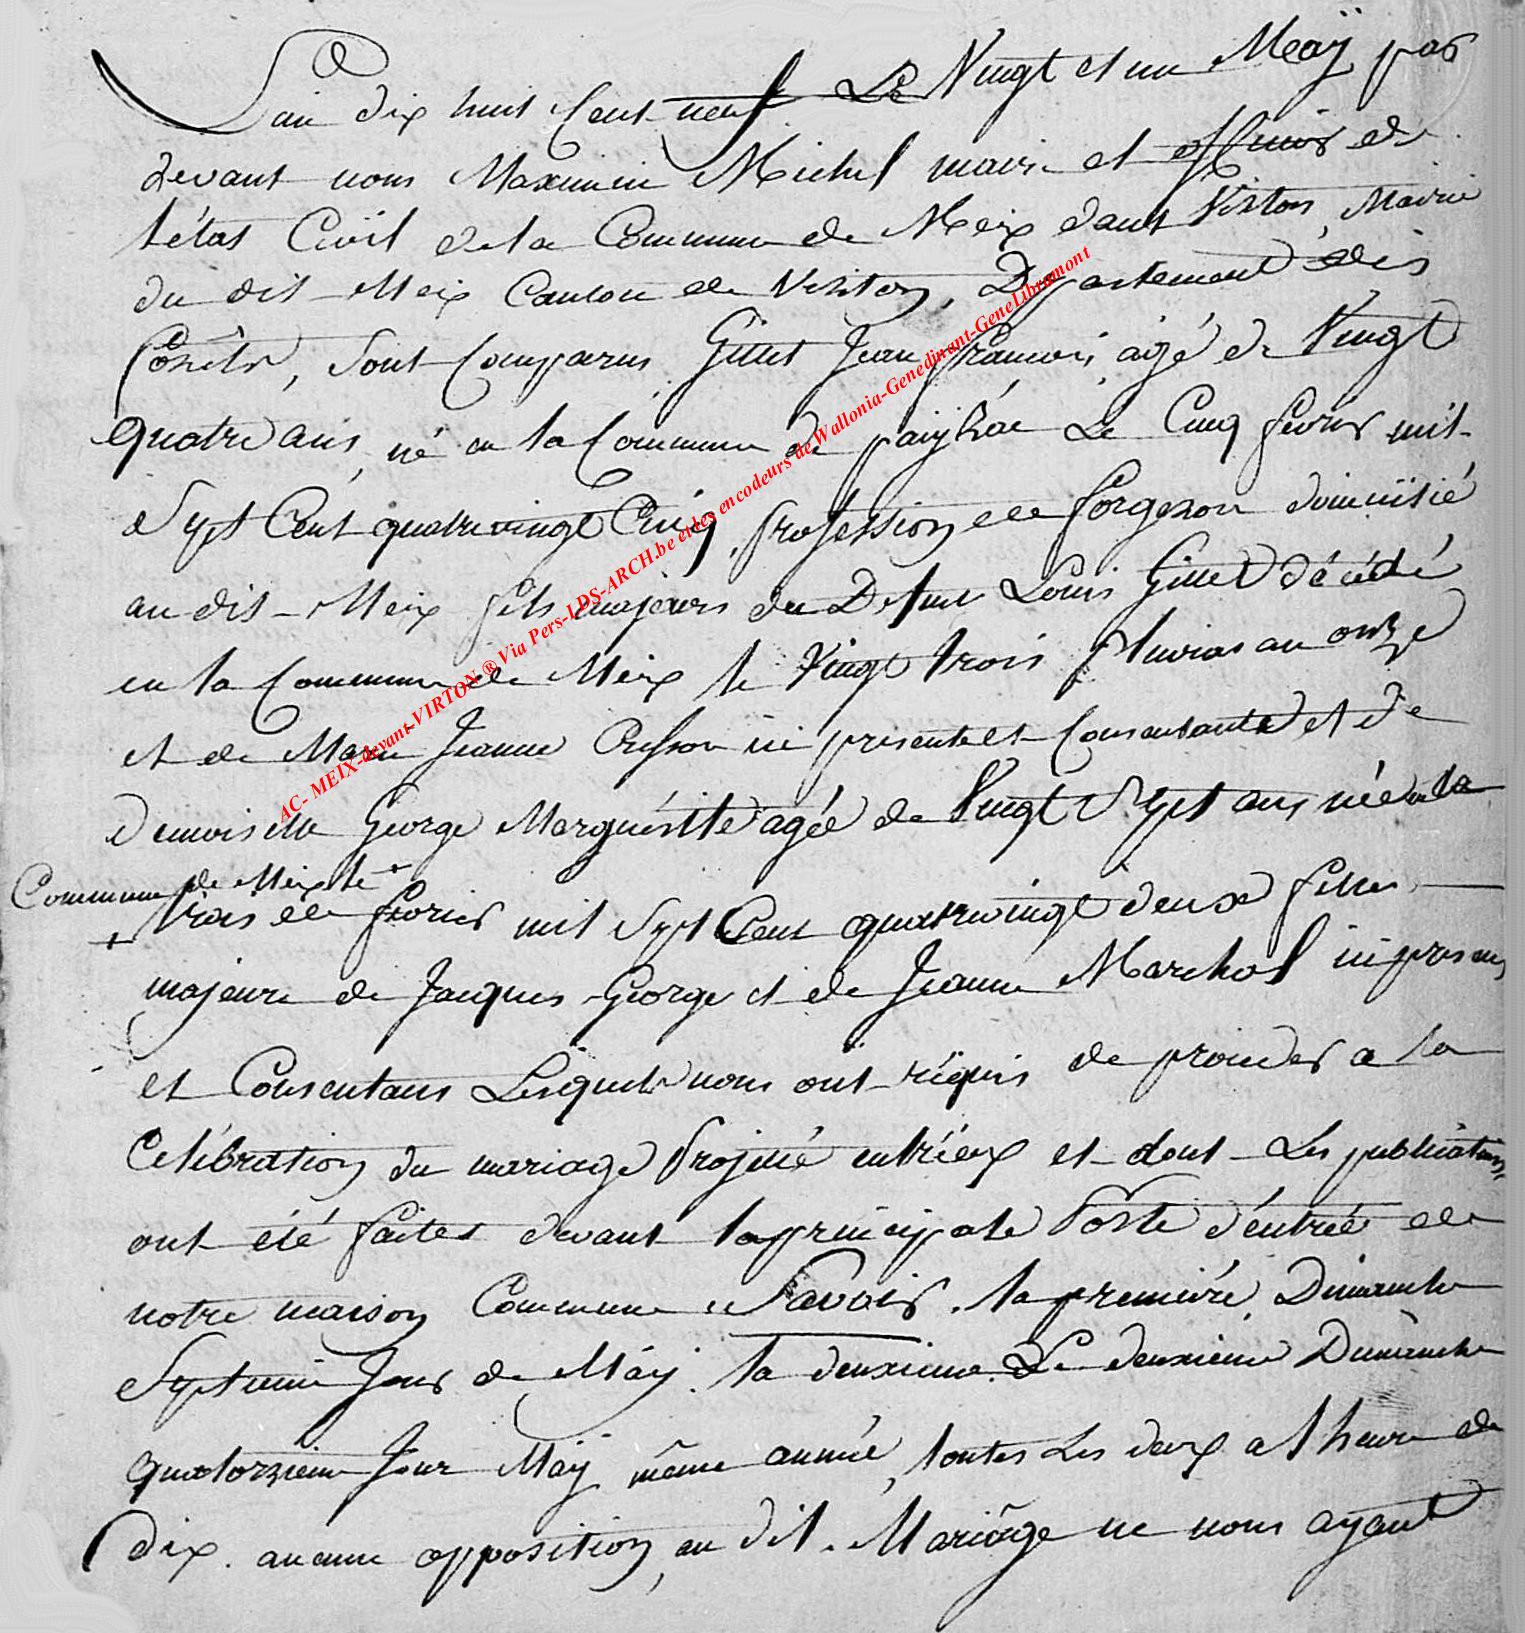 L'an dix huit Cent neuf Le Vingt et un Maÿ par
devant nous Maximin Michel maire et officier de
l'état Civil de la Commune de Meix devant Virton, Mairie
du dit Meix Canton de Virton, Département des
forêts, sont Comparus Gillet Jean francois, agé de Vingt
quatre ans, né en la Commune de le Cinq fevrier mil
Sept Cent quatre vingt Cinq, profession de forgeron domicilié
au dit Meix fils majeurs du Defunt Louis Gillet décédé
en la Commune de Meix le Vingt trois pluvios an onze
et de Marie Jeanne ici presente et Consentante et de
Demoiselle George Marguéritte agée de Vingt Sept ans née en la
Commune de Meix le +
+ trois de fevrier mil Sept Cent quatre vingt deux fille
majeure de Jacques George et de Jeanne Marchal ici presens
et Consentans Lesquels nous ont réquis de proceder a la
Celébration du mariage Projetté entr'éux et dont Les publications
ont été faites devant la principale Porte d'éntrée de
notre maison Commune, Savoir. la premiére, Dimanche
Septieme Jour de Maÿ. la deuxieme Le deuxieme Dimanche
quatorzieme Jour Maÿ même année, toutes Les deux a l heure de
dix. aucune opposition, au dit. Mariâge ne nous ayant
AC- MEIX-devant-VIRTON ® Via Pers-LDS-ARCH.be et les encodeurs de Wallonia-Genedinant-GeneLibramont